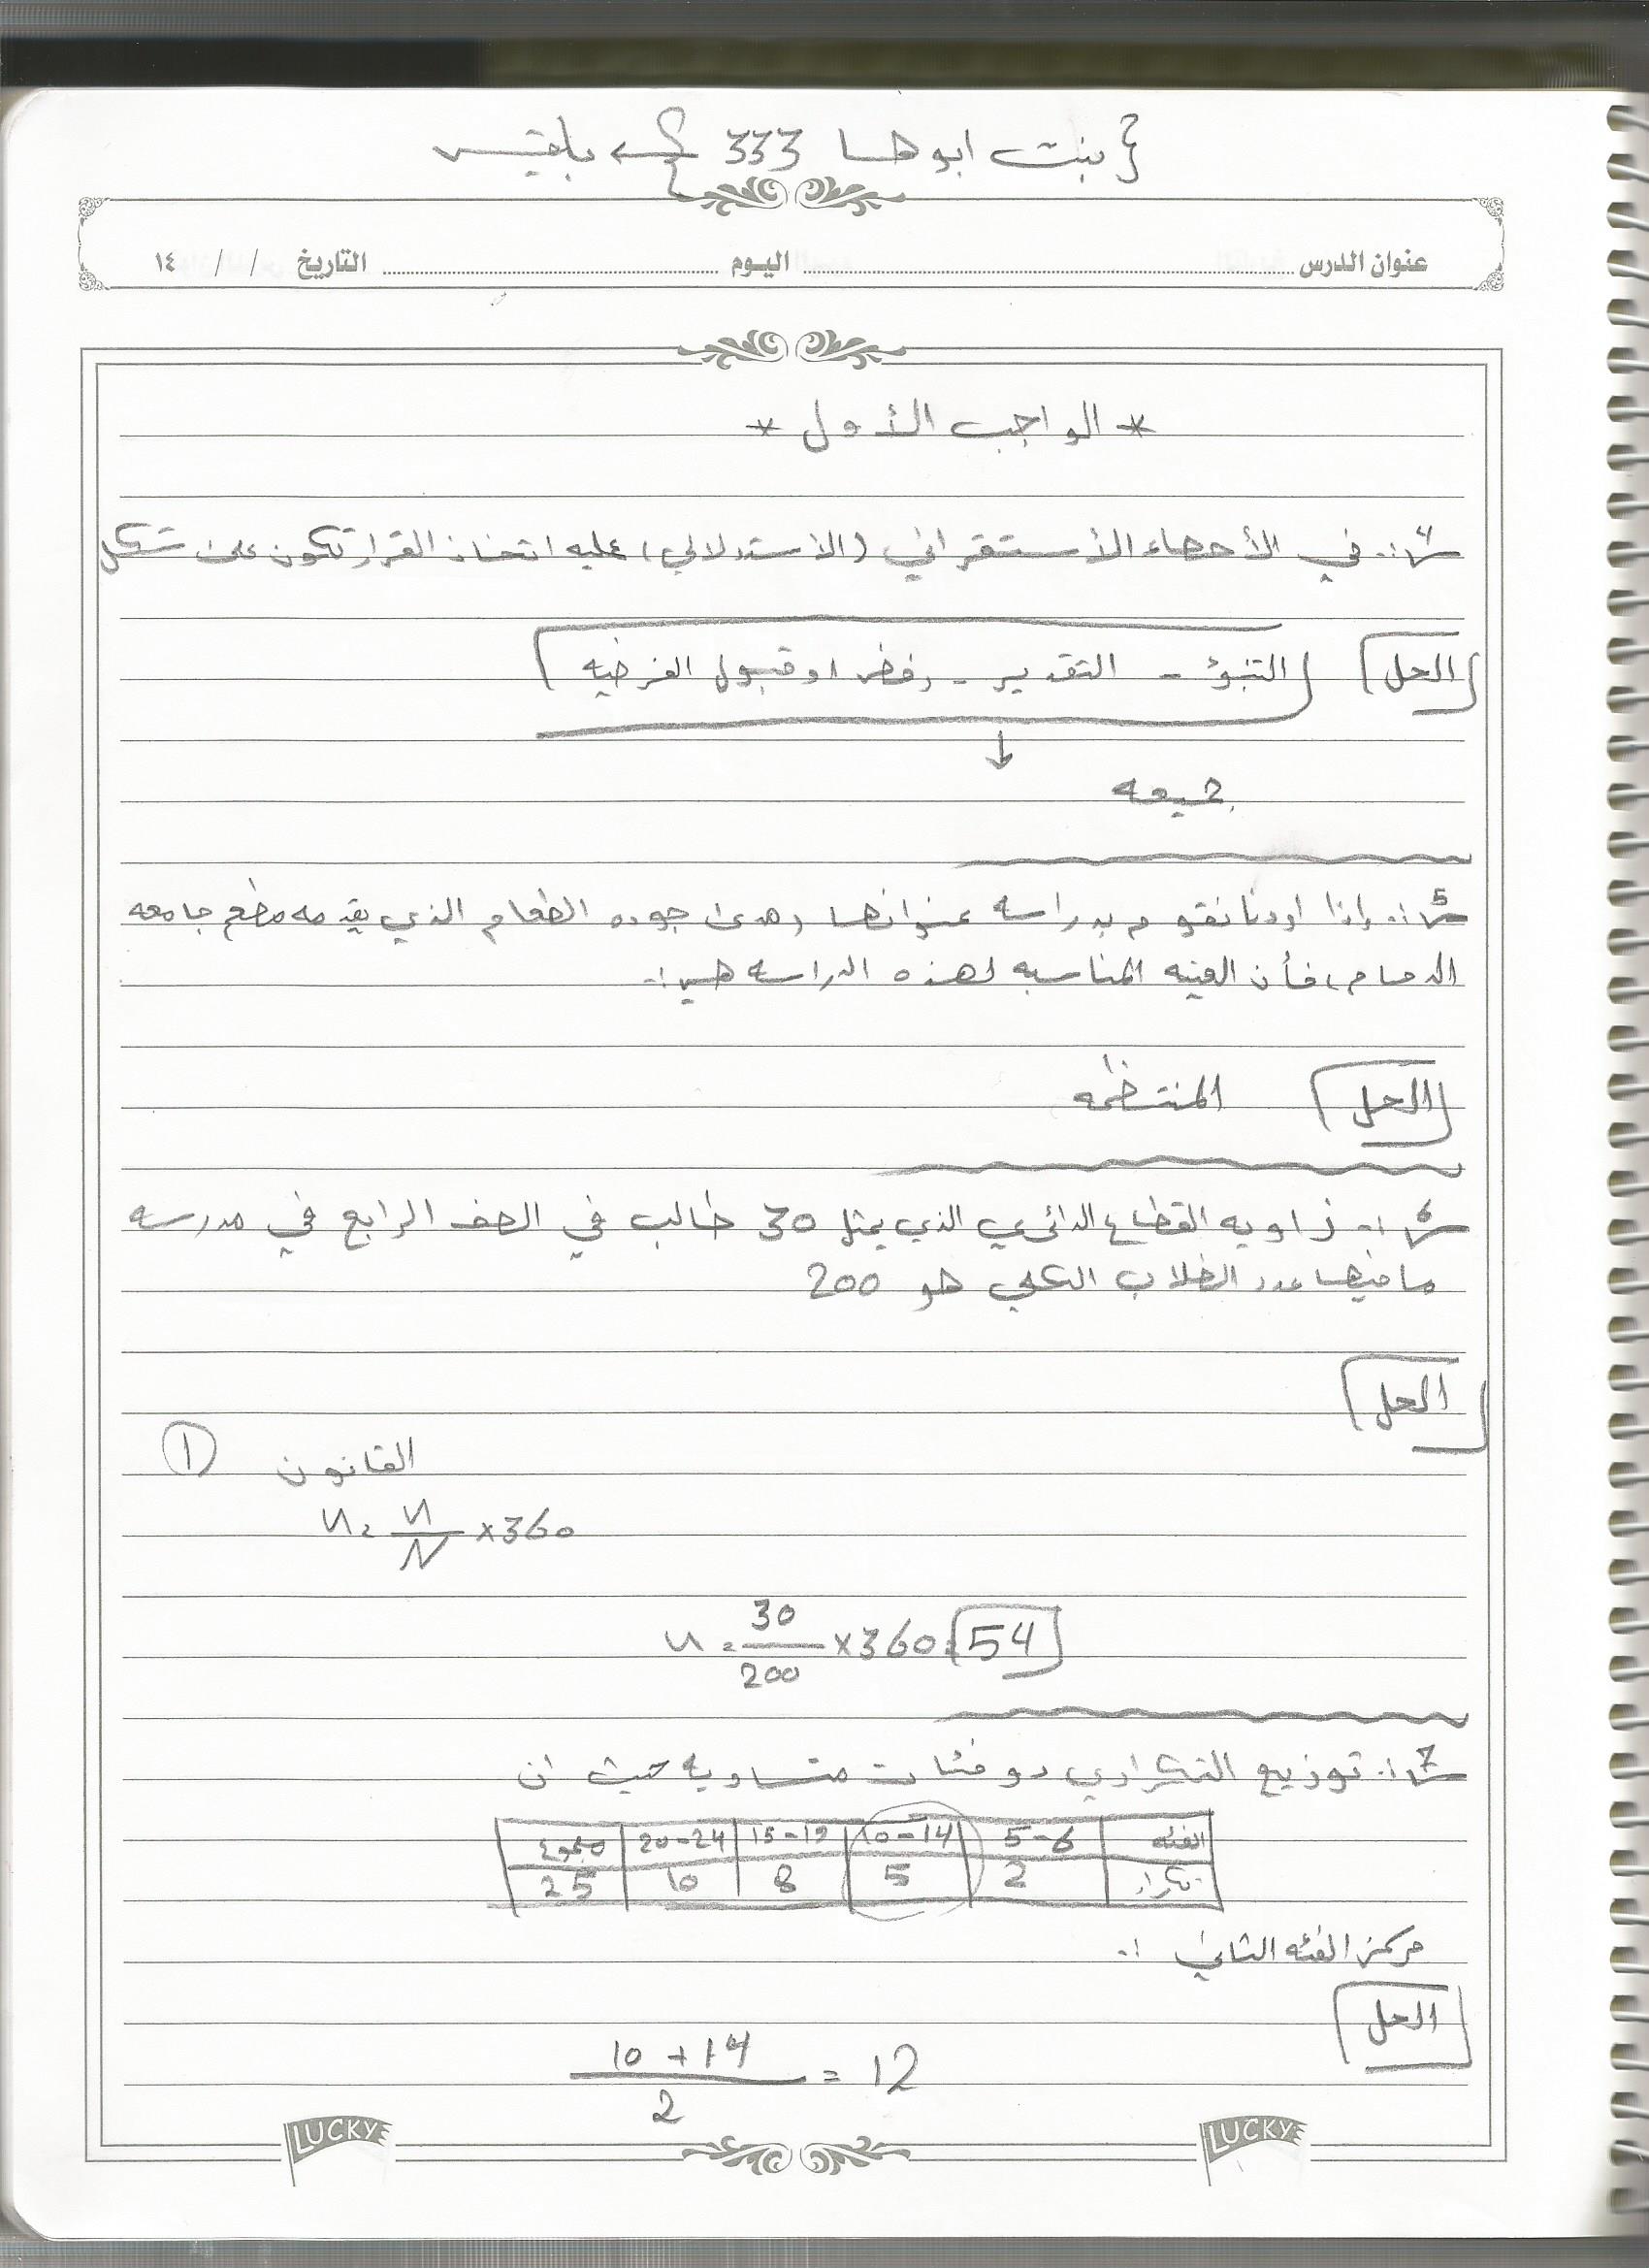 { بنت ابوها 333 } بلقيس
عنوان الدرس اليوم التاريخ / / ١٤
* الواجب الأول *
س٤:. في الأحصاء الأستقرائي (الاستدلالي) عليه اتخاذ القرار تكون على شكل
الحل التنبؤ - التقدير - رفض او قبول الفرضيه
↓
جميعه
س5:. إذا اردنا نقوم بدراسه عنوانها (مدى جوده الطعام الذي يقدمه مطعم جامعه
الدمام، فأن العينه المناسبه لهذه الدراسه هي:.
الحل المنتظمه
س6:. زاويه القطاع الدائري الذي يمثل 30 طالب في الصف الرابع في مدرسه
ما فيها عدد الطلاب الكلي هو 200
الحل
القانون ١
n = n/N ×360
n = 30/200 ×360 = 54
س7:. توزيع التكراري دو فئات متساويه حيث ان
الفئه 5-6 10-14 15-19 20-24 مجموع
تكرار 2 5 8 10 25
مركز الفئه الثاني :.
الحل
10 + 14 / 2 = 12
LUCKY LUCKY